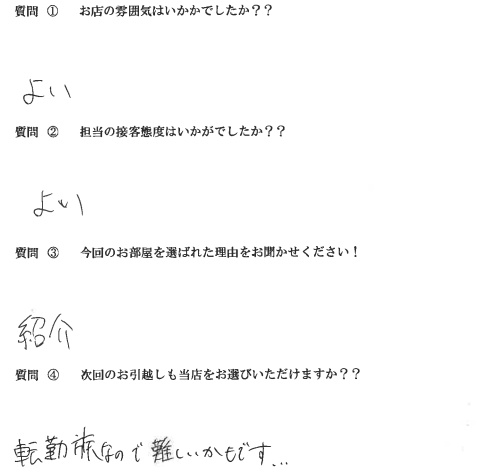 質問 ① お店の雰囲気はいかかでしたか？？
よい
質問 ② 担当の接客態度はいかがでしたか？？
よい
質問 ③ 今回のお部屋を選ばれた理由をお聞かせください！
紹介
質問 ④ 次回のお引越しも当店をお選びいただけますか？？
転勤族なので難しいかもです...